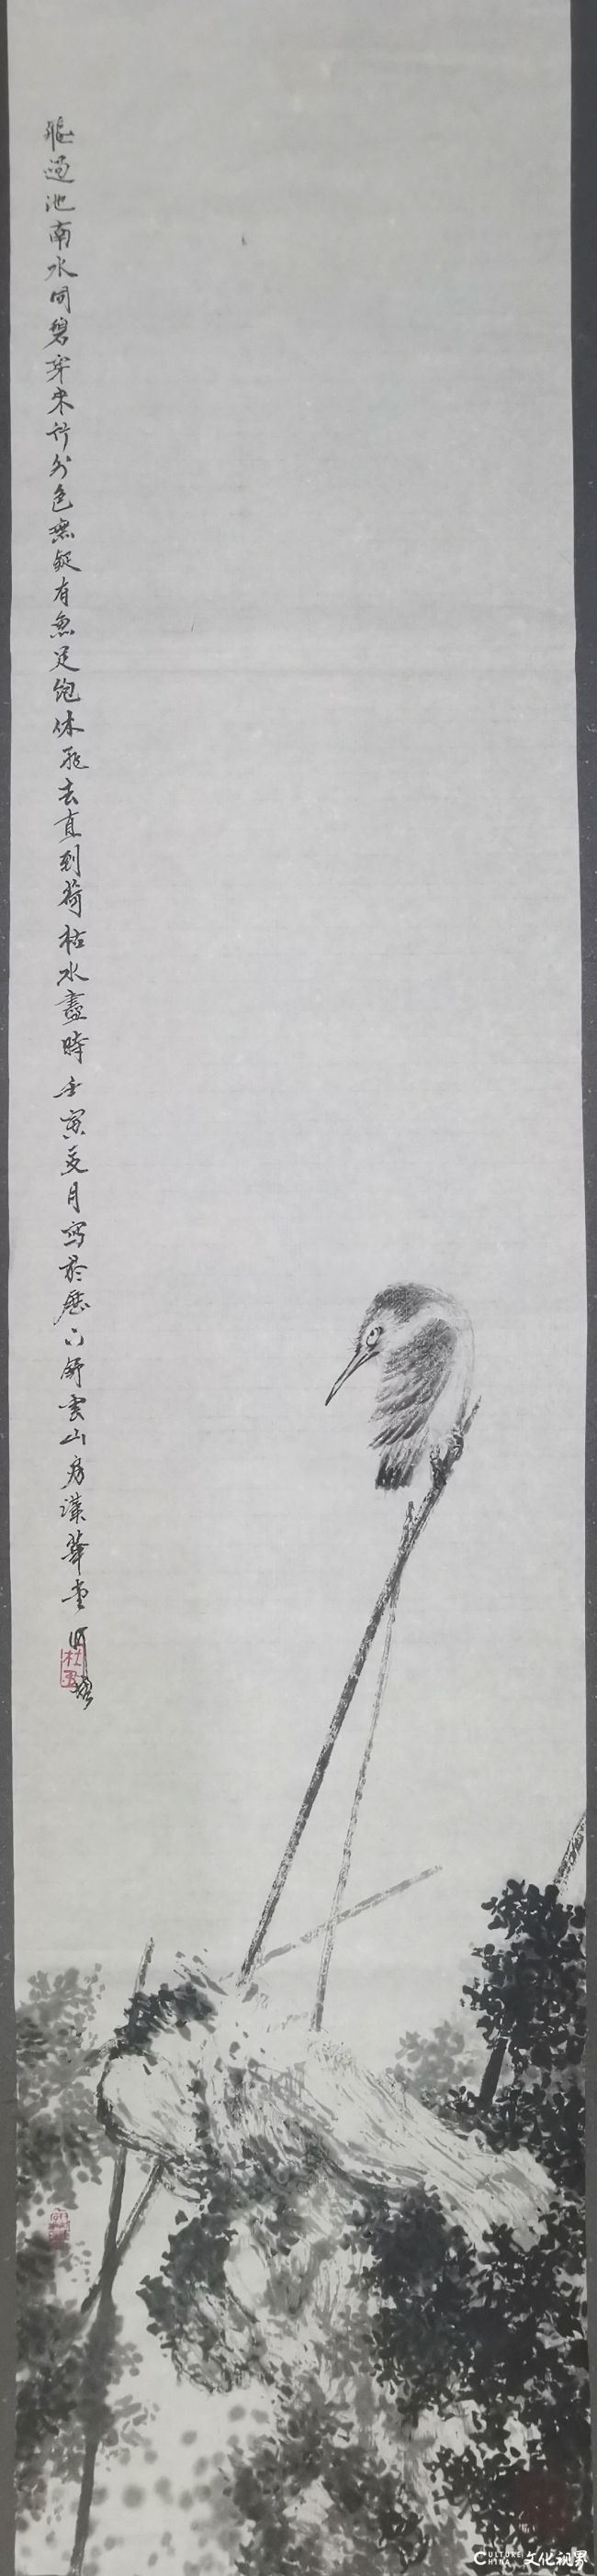 飛過池南水同碧穿來竹外色無疑有魚足飽休飛去直到荷枯水盡時壬寅夏月寫於歷下舒雲山房漢華堂
CULTURE CHINA 文化视界